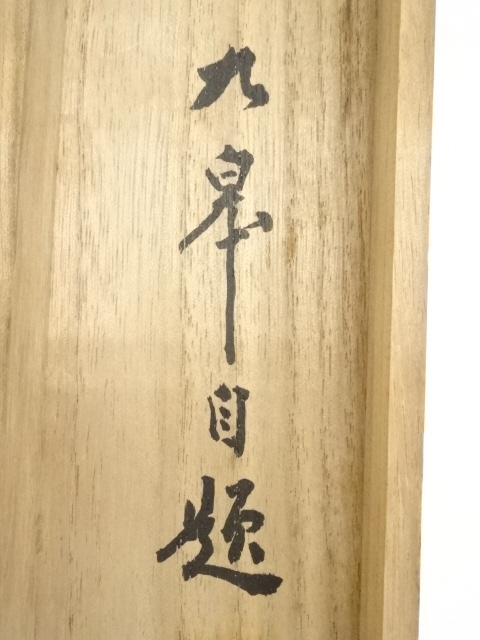 九皐自題